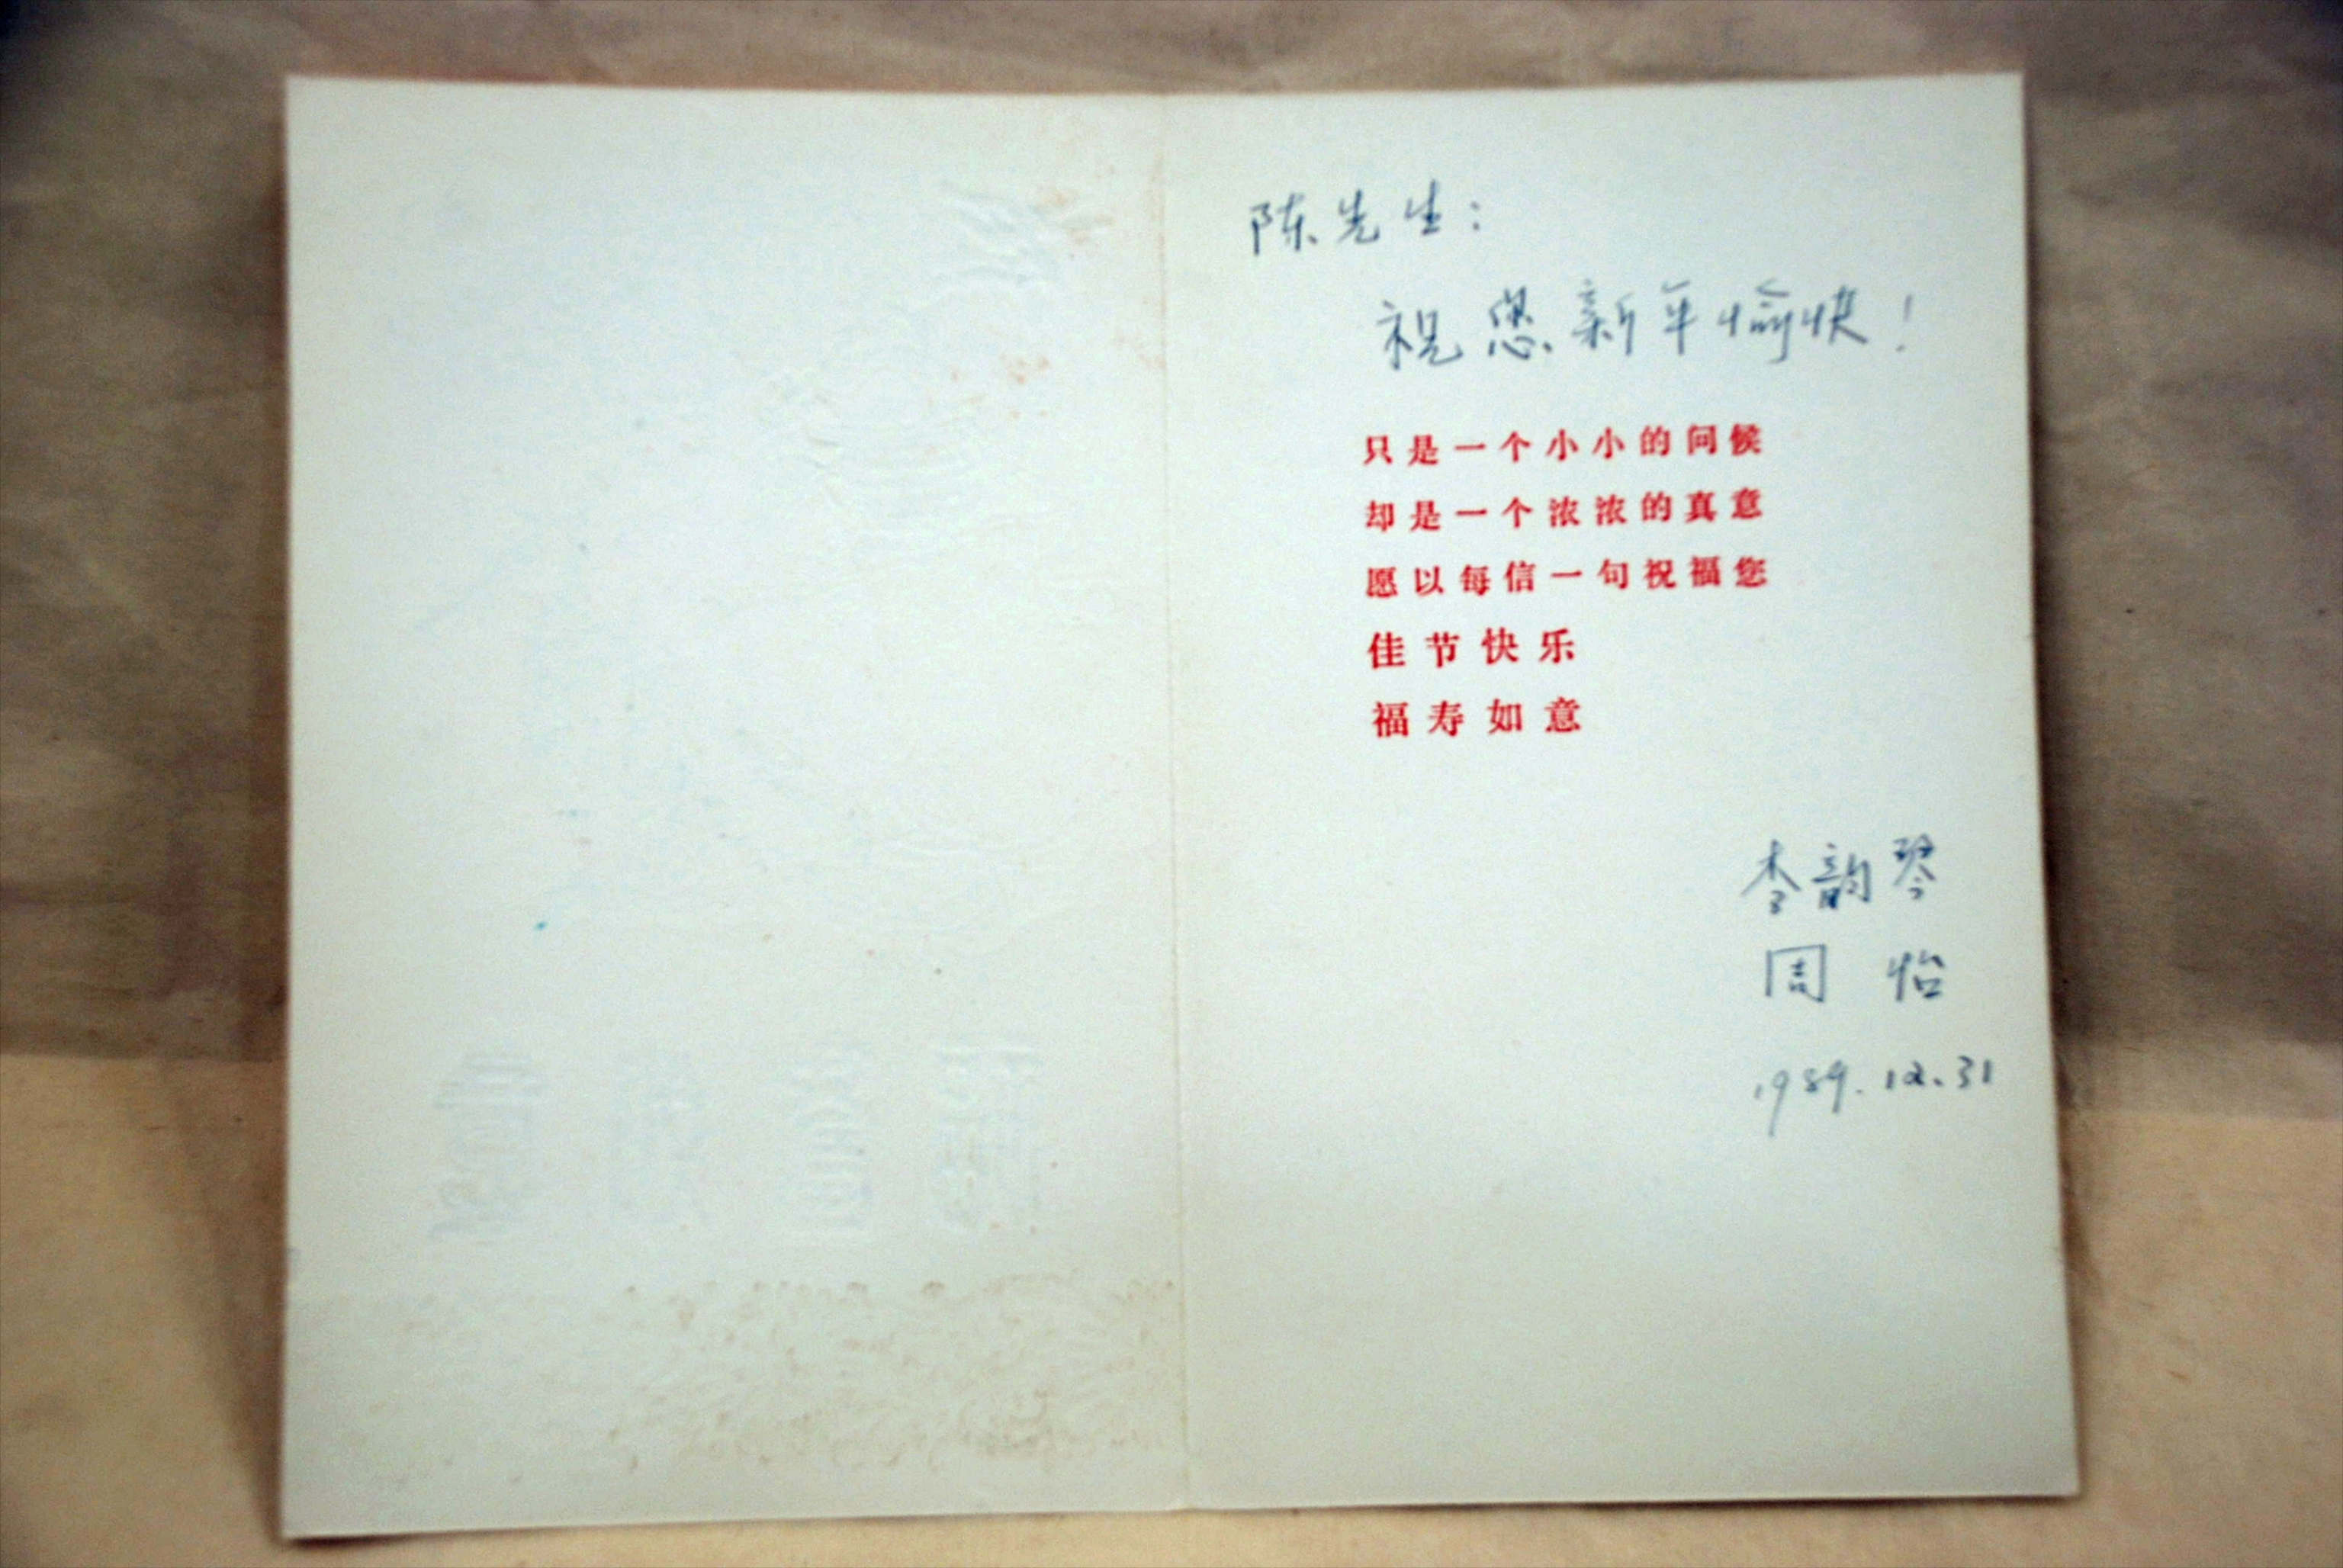 陈先生：
祝您新年愉快！
只是一个小小的问候
却是一个浓浓的真意
愿以每信一句祝福您
佳节快乐
福寿如意
李韵琴
周怡
1989.12.31